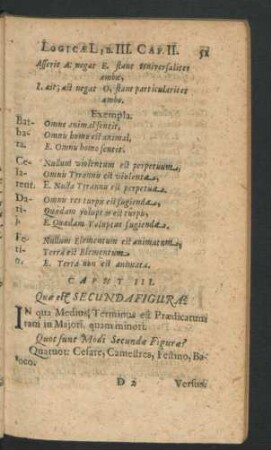 LOGICÆ LIB. III. CAP. II. 51
Asserit A: negat E. sunt universaliter
ambæ,
I. ait; ast negat O, sunt particulariter
ambo.
Exempla.
Bar- Omne animal sentit,
ba- Omnis homo est animal,
ra. E. Omnis homo sentit.
Ce- Nullum violentum est perpetuum,
la- Omnis Tyrannis est violenta,
rent. E. Nulla Tyrannis est perpetua.
Da- Omnis res turpis est fugienda,
ri- Quædam voluptas est turpis,
j. E. Quædam Voluptas fugienda.
Fe- Nullum Elementum est animatum,
ri- Terra est Elementum
o. E. Terra non est animata.
CAPUT III.
Quæ est SECUNDA FIGURA?
IN qua Medius Terminus est Prædicatum
tam in Majori. quam minori.
Quot sunt Modi Secundæ Figuræ?
Quatuor: Cesare, Camestres, Festino, Ba-
roco.
D 2 Versus.